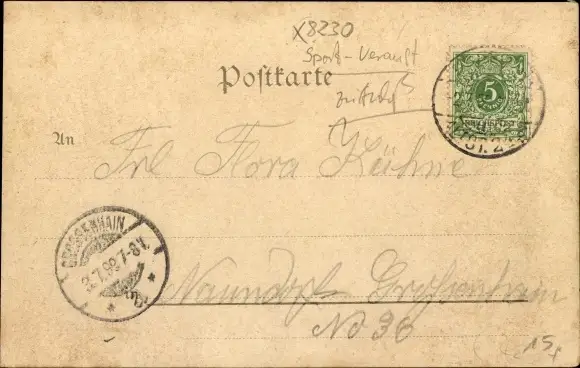 X8230
Sport-Veranst
Postkarte
5
REICHSPOST
An
Frl Flora Kühne
GROSSENHAIN
3.7.99.7-8V.
Naundorf Großenhain
No 36
15,